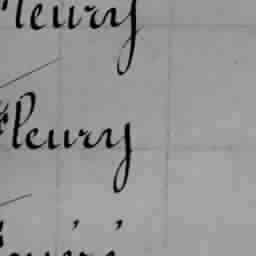 Fleury
Fleury